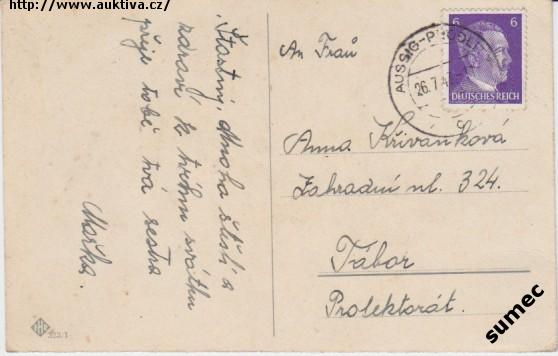 http://www.auktiva.cz/
Šťastný, Mnoho štěstí a
zdraví k tvému svátku
přeje tobě tvá sestra
Mařka.
An Frau
AUSSIG-P
26.7.4
6 6
DEUTSCHES REICH
Anna Křivanková
Zahradní ul. 324.
Tábor
Protektorát.
sumec